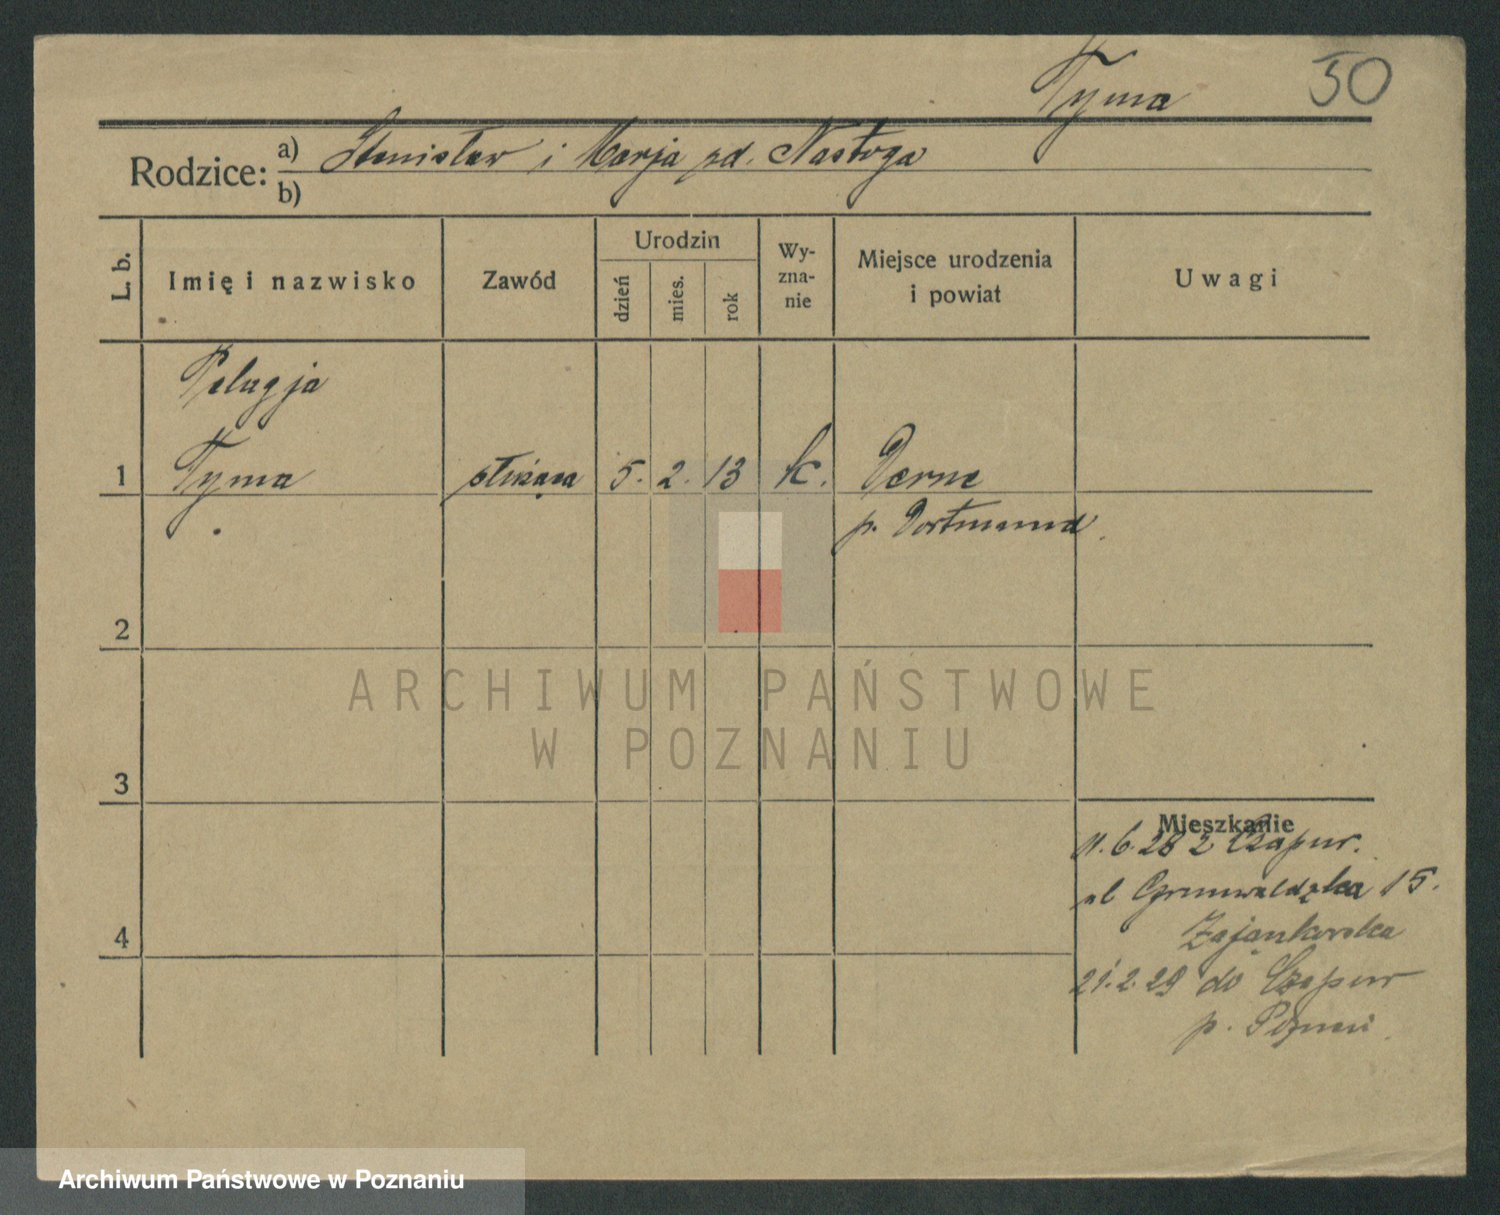 Tyma
50
Rodzice: a) Stanisław i Marja zd. Nastoga
b)
L. b. Imię i nazwisko Zawód Urodzin dzień mies. rok Wy-zna-nie Miejsce urodzenia i powiat Uwagi
Pelagja
1 Tyma służąca 5. 2. 13 k. Derne
p. Dortmund.
2
ARCHIWUM PAŃSTWOWE
W POZNANIU
3
Mieszkanie
11.6.28 z Czapur.
ul Grunwaldzka 15.
4
21.2.29 do Czapur
p. Poznań
Archiwum Państwowe w Poznaniu